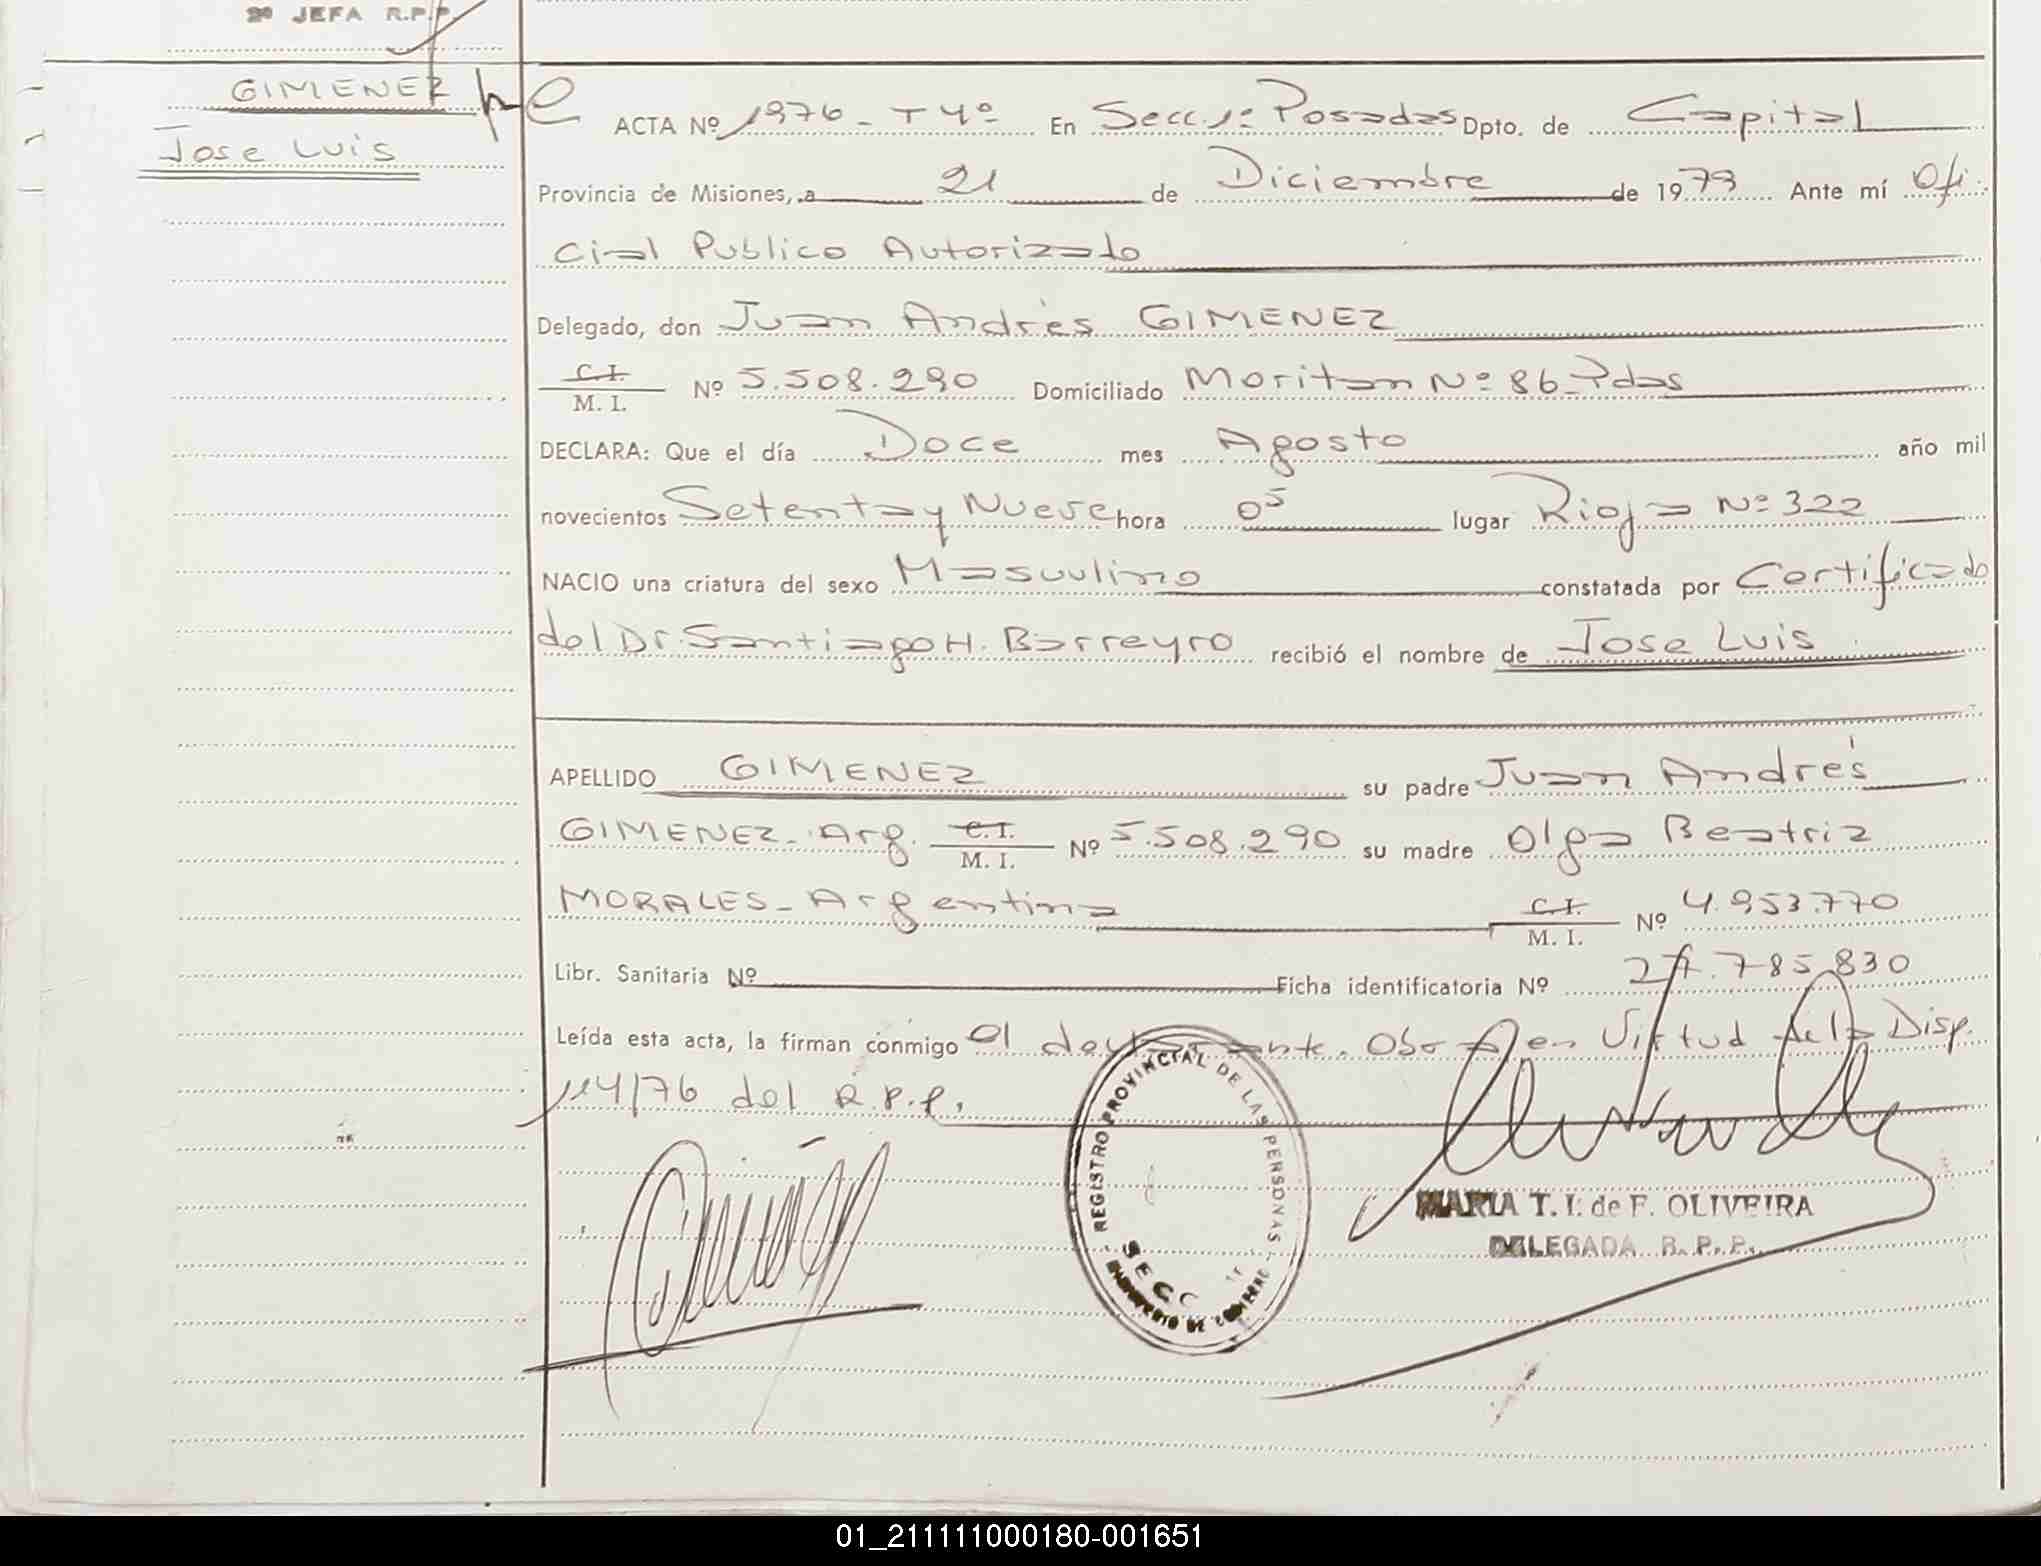 2º JEFA R.P.P.
GIMENEZ
Jose Luis
ACTA Nº 1976 - T 4º En Secc. 1º Posadas Dpto. de Capital
Provincia de Misiones, a 21 de Diciembre de 1979 Ante mí Ofi
cial Publico Autorizado
Delegado, don Juan Andrés GIMENEZ
C.I.
M. I. Nº 5.508.290 Domiciliado Moritan Nº 86 - Pdas
DECLARA: Que el día Doce mes Agosto año mil
novecientos Setenta y Nueve hora 05 lugar Rioja Nº 322
NACIO una criatura del sexo Masculino constatada por Certificado
del Dr. Santiago H. Barreyro recibió el nombre de Jose Luis
APELLIDO GIMENEZ su padre Juan Andrés
GIMENEZ - Arg. C.I. M. I. Nº 5.508.290 su madre Olga Beatriz
MORALES - Argentina C.I. M. I. Nº 4.953.770
Libr. Sanitaria Nº Ficha identificatoria Nº 27.785.830
Leída esta acta, la firman conmigo el declarante. Obra en Virtud de la Disp.
114/76 del R.P.P.
REGISTRO PROVINCIAL DE LAS PERSONAS
SECC
MARIA T. I. de F. OLIVEIRA
DELEGADA R. P. P.
01_211111000180-001651